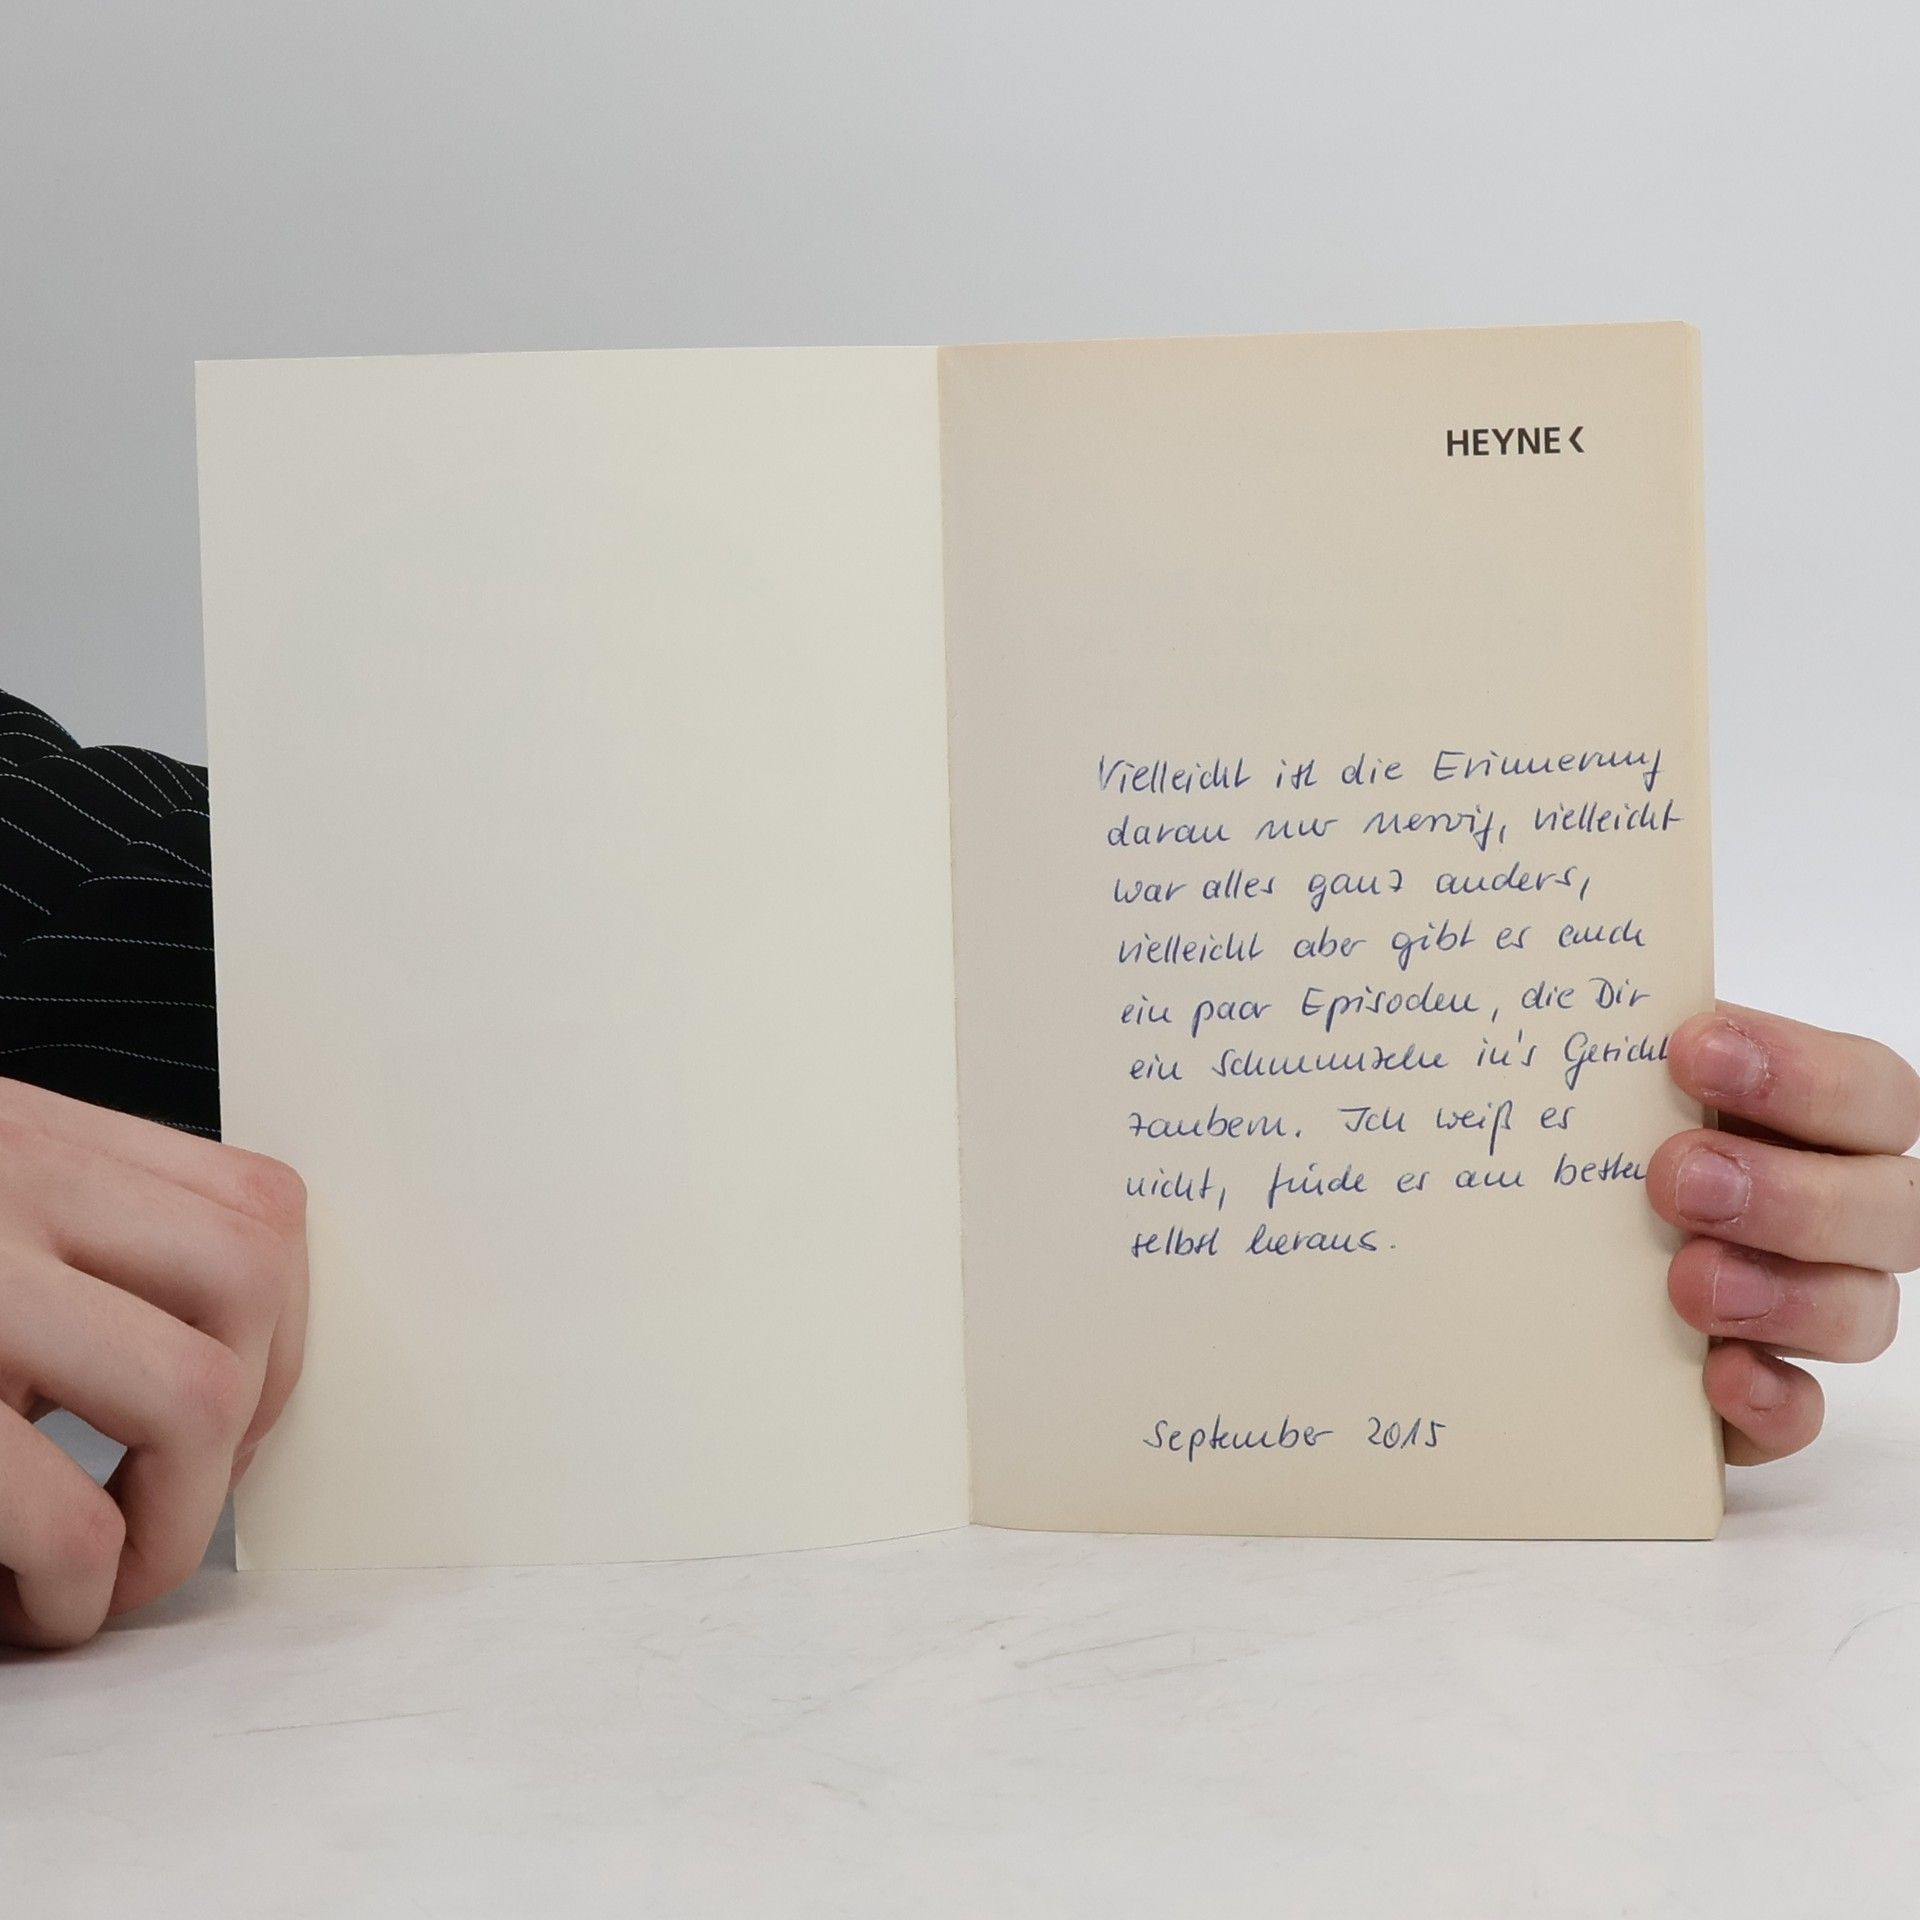 HEYNE<
Vielleicht ist die Erinnerung
daran nur nervig, vielleicht
war alles ganz anders,
vielleicht aber gibt es auch
ein paar Episoden, die Dir
ein Schmunzeln in's Gesicht
zaubern. Ich weiß es
nicht, finde es am besten
selbst heraus.
September 2015